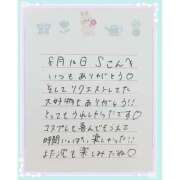 8月10日 Sさんへ
いつもありがとう♡
そしてリクエストしてた
大好物もありがとう!!
とってもうれしかったです♡
コスプレも喜んでもらえて
時間いっぱい楽しかった!!
また次も楽しみだね♡